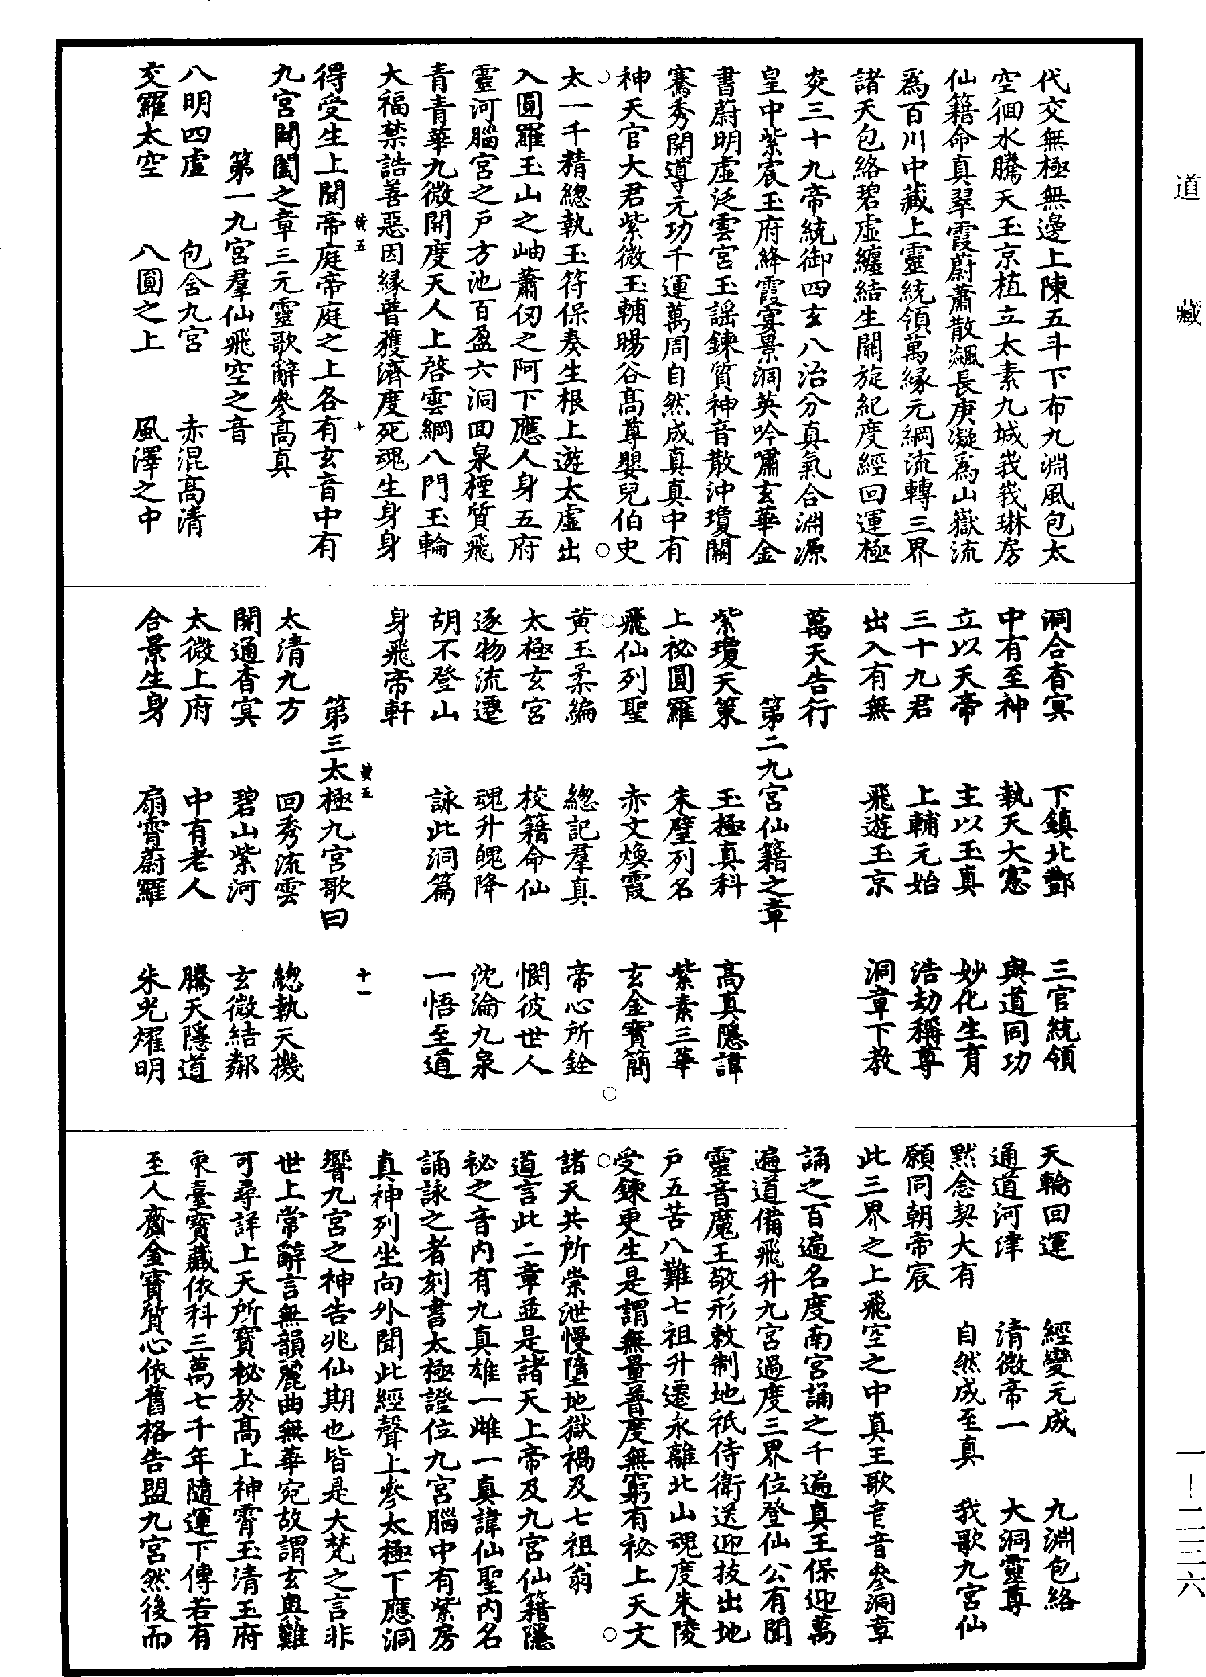 道藏
一—二三六
代交無極無邊上陳五斗下布九淵風包太
空徊水騰天玉京植立太素九城峩峩琳房
仙籍命真翠霞蔚蕭散飈長庚凝爲山嶽流
爲百川中藏上靈統領萬緣元綱流轉三界
諸天包絡碧虛纏結生關旋紀度經回運極
炎三十九帝統御四玄八治分真氣合淵源
皇中紫宸玉府絳霞寥景洞英吟嘯玄華金
書蔚明虛泛雲宮玉謡鍊質神音散沖瓊闕
騫秀開導元功千運萬周自然成真真中有
神天官大君紫微玉輔暘谷高尊嬰兒伯史
太一千精總執玉符保奏生根上遊太虛出
入圓羅玉山之岫蕭仞之阿下應人身五府
靈河腦宮之戶方池百盈六洞回泉桎質飛
青青華九微開度天人上啓雲綱八門玉輪
大福禁誥善惡因緣普獲濟度死魂生身身
得受生上聞帝庭帝庭之上各有玄音中有
黃五
十
九宮開闔之章三元靈歌辭參高真
第一九宮羣仙飛空之音
八明四虛 包含九宮 赤混高清
交羅太空 八圓之上 風澤之中
洞合杳冥 下鎮北酆 三官統領
中有至神 執天大憲 與道同功
立以天帝 主以玉真 妙化生育
三十九君 上輔元始 浩劫稱尊
出入有無 飛遊玉京 洞章下教
萬天告行
第二九宮仙籍之章
紫瓊天篆 玉極真科 高真隱諱
上祕圓羅 朱陵列名 紫素三華
飛仙列聖 赤文煥霞 玄金寶簡
黃玉柔編 總記羣真 帝心所銓
太極玄宮 校籍命仙 憫彼世人
逐物流遷 魂升魄降 沈淪九泉
胡不登山 詠此洞篇 一悟至道
身飛帝軒
黃五
十一
第三太極九宮歌曰
太清九方 回秀流雲 總執天機
開通杳冥 碧山紫河 玄微結鄰
太微上府 中有老人 騰天隱道
合景生身 扇霄蔚羅 朱光耀明
天輪回運 經變元成 九淵包絡
通道河津 清微帝一 大洞靈尊
默念契大有 自然成至真 我歌九宮仙
願同朝帝宸
此三界之上飛空之中真王歌章音參洞章
誦之百遍名度南宮誦之千遍真王保迎萬
遍道備飛升九宮過度三界位登仙公有聞
靈音魔王敬形敕制地祇侍衛送迎拔出地
戶五苦八難七祖升遷永離北山魂度朱陵
受鍊更生是謂無量普度無窮有祕上天文
諸天共所崇泄慢墮地獄禍及七祖翁
道言此二章並是諸天上帝及九宮仙籍隱
祕之音內有九真雄一雌一真諱仙聖內名
誦詠之者刻書太極證位九宮腦中有紫房
真神列坐向外聞此經聲上參太極下應洞
響九宮之神告兆仙期也皆是大梵之言非
世上常辭言無韻麗曲無華宛故謂玄奧難
可尋詳上天所寶祕於高上神霄玉清玉府
東臺寶藏依科三萬七千年隨運下傳若有
至人齎金寶質心依舊格告盟九宮然後而